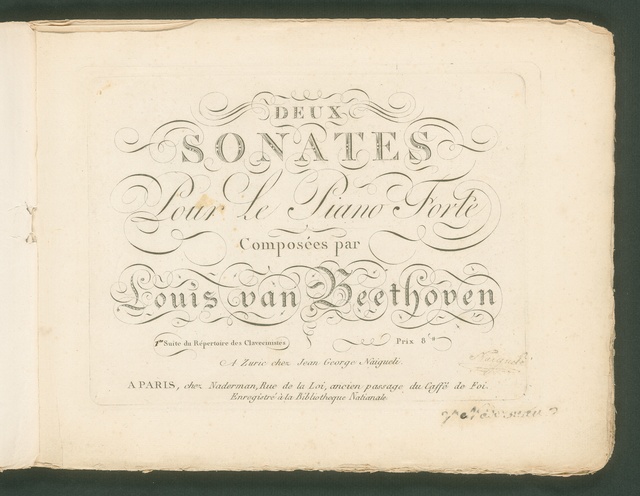 DEUX
SONATES
Pour Le Piano Forte
Composées par
Louis van Beethoven
1re Suite du Répertoire des Clavecinistes
Prix 8tt
A Zuric chez Jean George Naigueli.
A PARIS, chez Naderman, Rue de la Loi, ancien passage du Caffé de Foi.
Enregistré à la Bibliotheque Nationale.